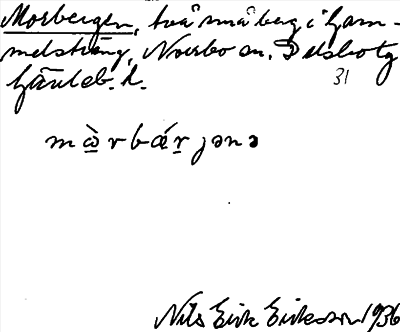 Morbergen, två små berg i Gam-
melsträng, Norrbo sn, Delsbo tg
Gävleb. l.
31
mɑ̀rbǽrjənə
Nils Eirik Eriksson 1936